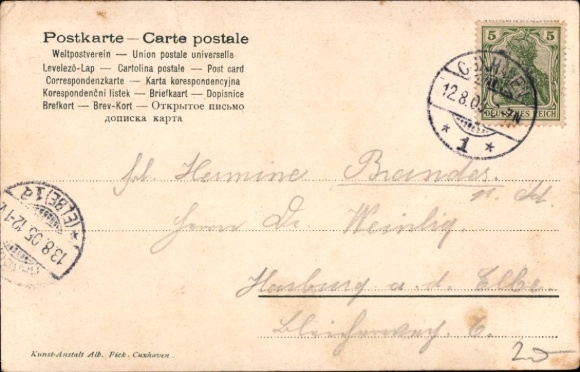 Postkarte — Carte postale
Weltpostverein — Union postale universelle
Levelező-Lap — Cartolina postale — Post card
Correspondenzkarte — Karta korespondencyjna
Korespondenční lístek — Briefkaart — Dopisnice
Brefkort — Brev-Kort — Открытое письмо
дописка карта
5 5
DEUTSCHES REICH
CUXHAVEN
12.8.05
* 1 *
Frl. Hermine Brandes
Herrn Dr. Weinlig
Harburg a. d. Elbe
Bleicherweg 6.
(ELBE) 1
13.8.05. 12-1
20-
Kunst-Anstalt Alb. Fick. Cuxhaven.